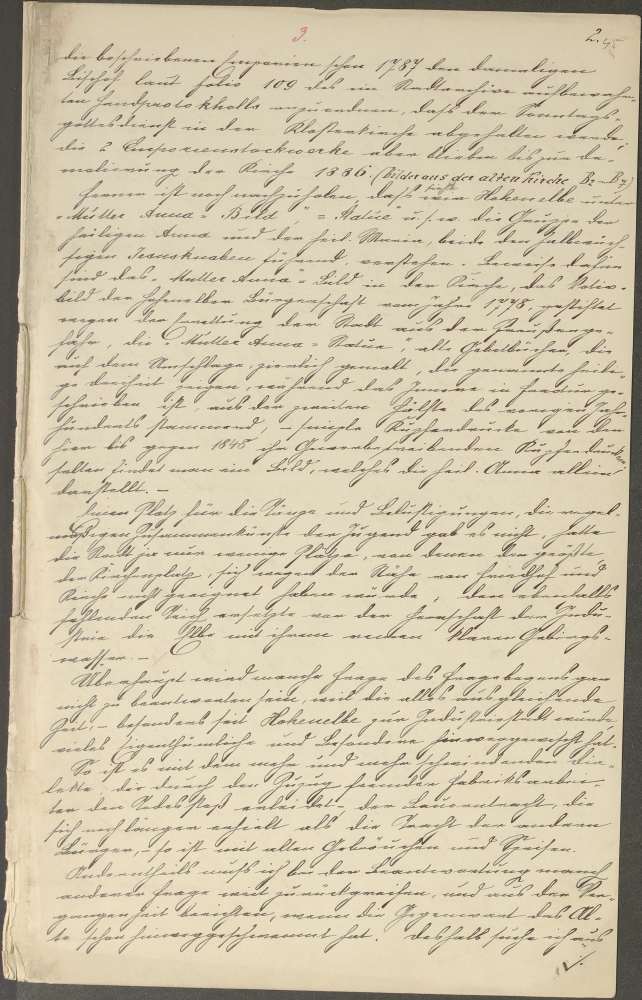 3.
2.
die beschriebenen Emporien schon 1787 den damaligen
Bischof laut Folio 109 des im Stadtarchive aufbewahr-
ten Handprotokholls anzuordnen, daß der Sonntags-
gottesdienst in der Klosterkirche abgehalten werde,
die 2 Emporienstockwerke aber blieben bis zur De-
molierung der Kirche 1886. (Bilder aus der alten Kirche B2 - B7)
Ferner ist noch nachzuholen, daß wir Hohenelbe unter
"Mutter Anna = Bild", "= Statue" u.s.w. die Gruppe der
heiligen Anna und der heil. Maria, beide den halbwüch-
sigen Jesusknaben führend, verstehen. Beweise dafür
sind das "Mutter Anna" = Bild in der Kirche, das Votiv-
bild der Hohenelber Bürgerschaft vom Jahre 1778, gestiftet
wegen der Errettung der Stadt aus der Preußenge-
fahr, die "Mutter Anna = Statue", alte Gebetbücher, die
auf dem Umschlage, zierlich gemalt, die genannte heili-
ge Dreiheit zeigen, während das Innere in Fractur ge-
schrieben ist, aus der zweiten Hälfte des vorigen Jahr-
hunderts stammend, - einzelne Kupferdrucke von den
hier bis gegen 1848 ihr Gewerbe treibenden Kupferdruckern.
Selten findet man ein Bild, welches die heil. Anna allein
darstellt. -
Einen Platz für die Singe und Belustigungen, die regel-
mäßigen Zusammenkünfte der Jugend gab es nicht, hatte
die Stadt ja nur wenige Plätze, von denen der größte
der Kirchenplatz, sich wegen der Nähe von Friedhof und
Kirche nicht geeignet haben würde, den ebenfalls
fehlenden Teich ersetzte vor der Herrschaft der Indu-
strie die Elbe mit ihrem reinen klaren Gebirgs-
wasser. -
Überhaupt wird manche Frage des Fragebogens gar
nicht zu beantworten sein, weil die alles ausgleichende
Zeit, - besonders seit Hohenelbe zur Industriestadt wurde
vieles Eigenthümliche und Besondere hinweggewischt hat.
So ist es mit dem mehr und mehr schwindenden Dia-
lekte, der durch den Zuzug fremder Fabriksarbei-
ter den Todesstoß erleidet, der Bauerntracht, die
sich noch länger erhielt als die Tracht der andern
Bürger, so ist mit alten Gebräuchen und Speisen.
Anderntheils muß ich bei der Beantwortung manch
anderer Frage weit zurückgreifen, und aus der Ver-
gangenheit berichten, wenn die Gegenwart das Al-
te schon hinweggeschwemmt hat. Deshalb suche ich aus
./.